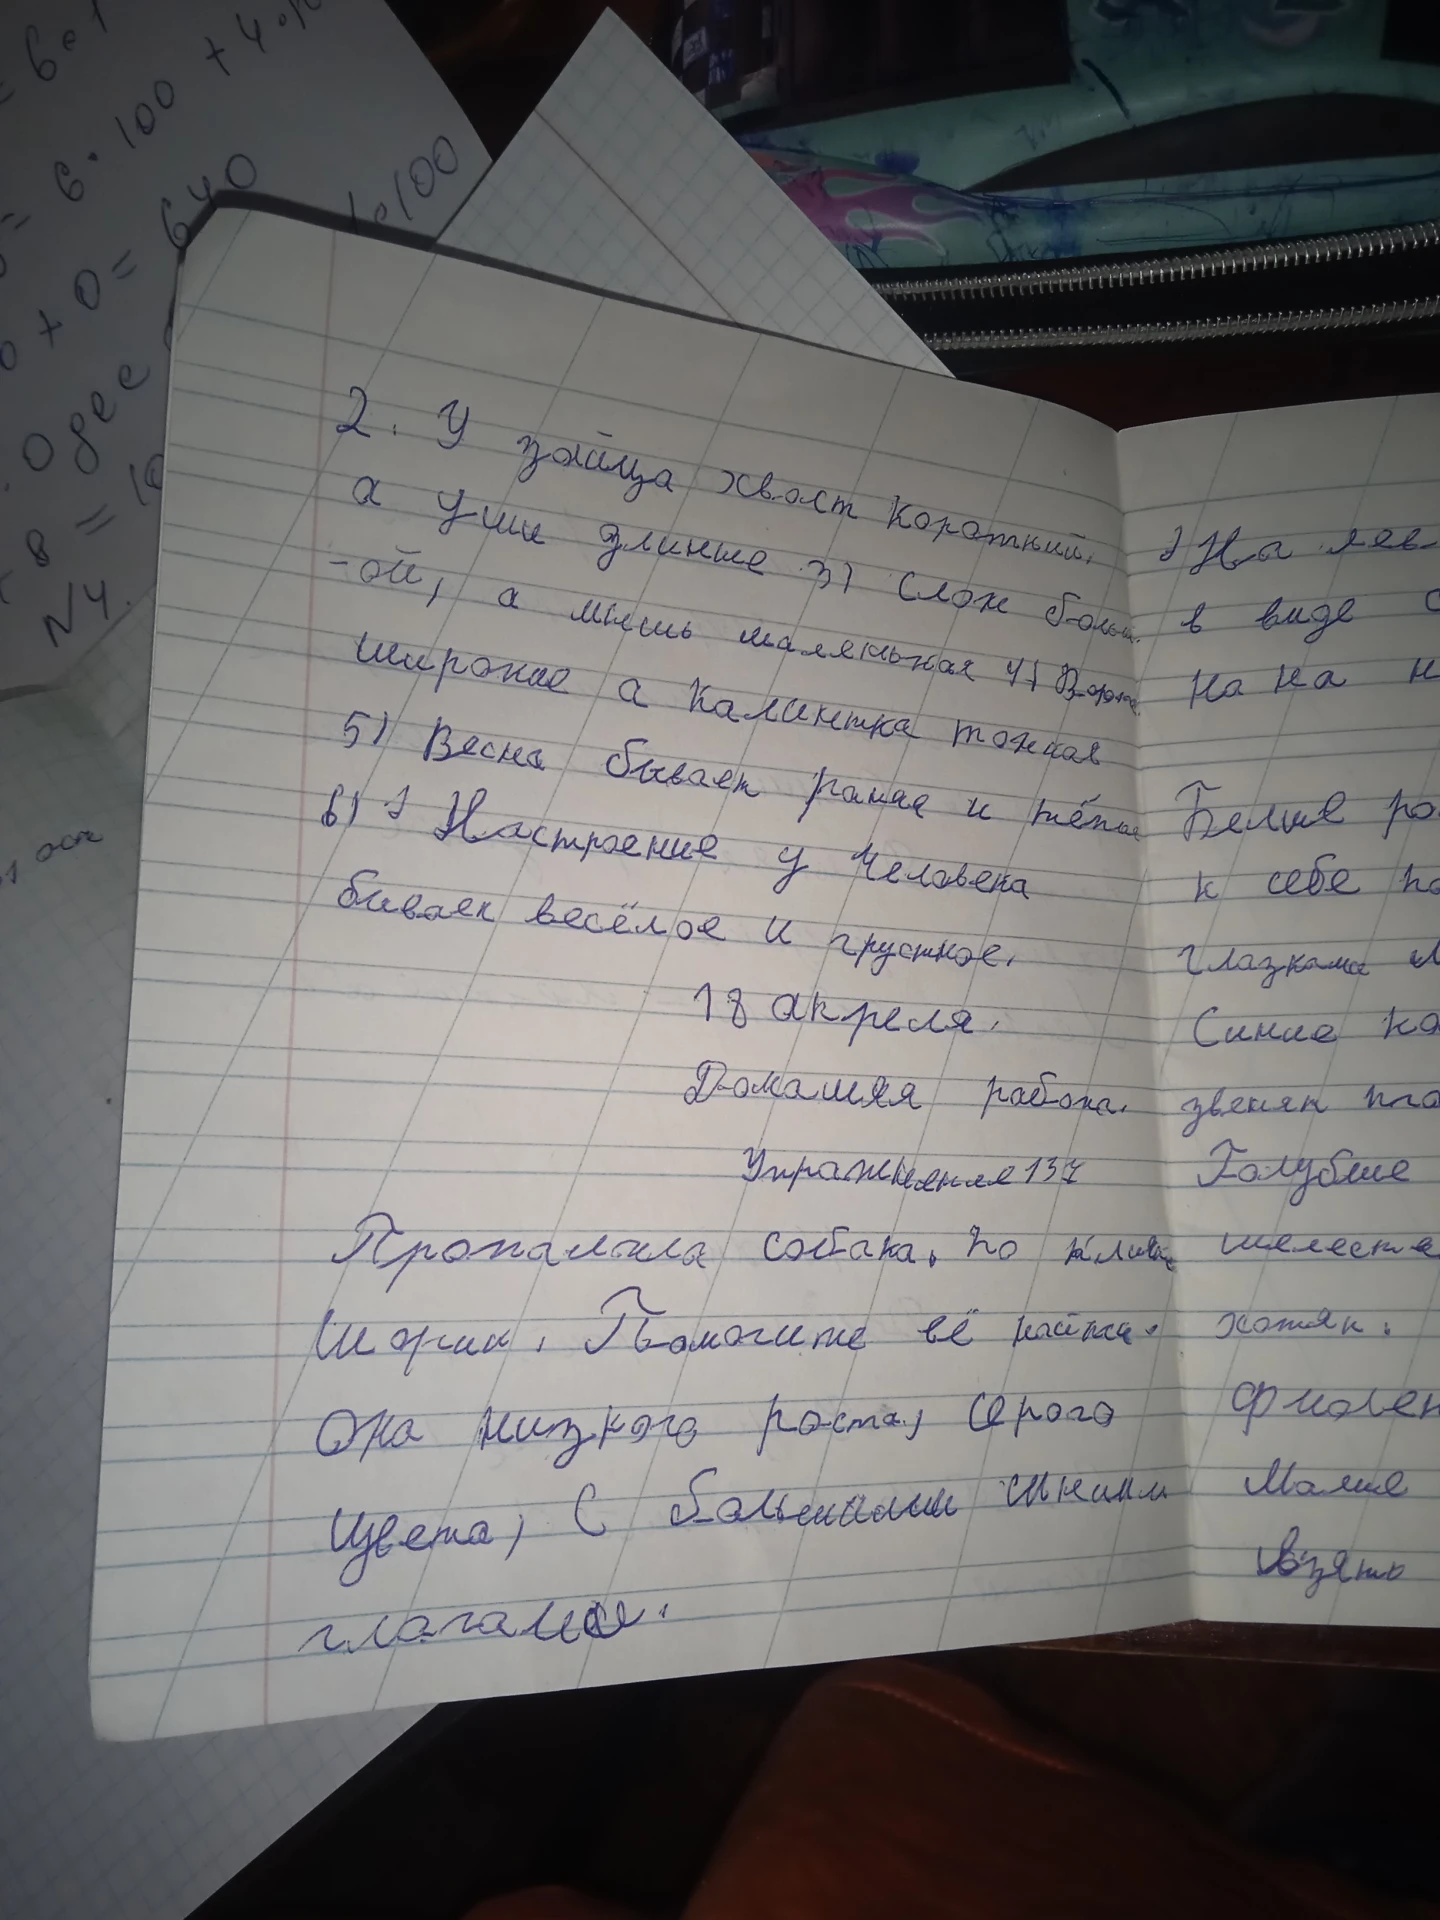 2. У зайца хвост короткий,
а уши длиные 3) Слон больш-
-ой, а мышь маленькая 4) Ворота
широкие а калитка тонкая
5) Весна бывает раняя и
6) Настроение у человека
бывает весёлое и грустное.
18 апреля.
Домашняя работа.
Упражнения 137
Пропала собака. По кличке
Шарик. Помогите её найти.
Она низкого роста, серого
цвета, с большими синими
глазами.
На лев
в виде с
на на н
Белые ро
к себе по
глазками
Синие ко
звенят
Голубые
шелестя
хотят.
Фиолен
Малые
взять
= 6 · 100 + 4
0 + 0 = 640
1 · 100
8 = 10
N4.